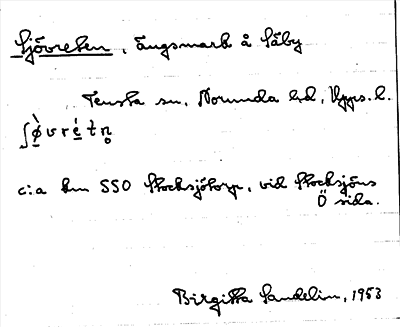 Sjövreten, ängsmark å Säby
Tensta sn, Norunda hd, Upps. l.
ʃø̀vrétn̥
c:a km SSO Stocksjötorp, vid Stocksjöns
Ö sida.
Birgitta Sandelin, 1953